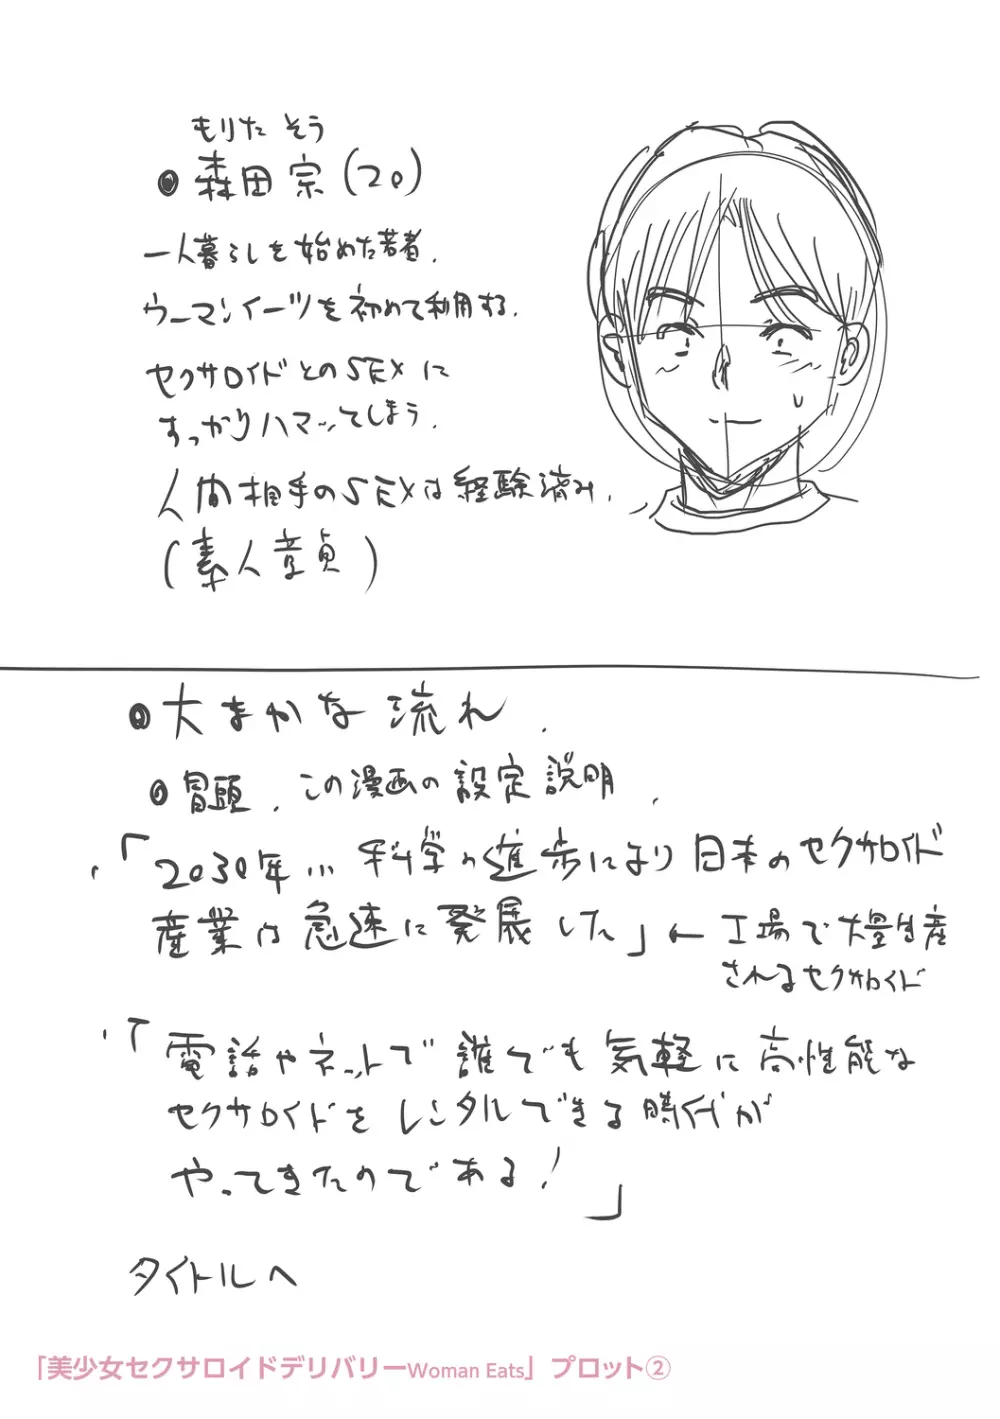 もりた そう
●森田宗(20)
一人暮らしを始めた若者.
ウーマンイーツを初めて利用する.
セクサロイドとのSEXに
すっかりハマってしまう.
人間相手のSEXは経験済み.
(素人童貞)
●大まかな流れ.
●冒頭.この漫画の設定説明.
・「2030年…科学の進歩により日本のセクサロイド
産業は急速に発展した」←工場で大量生産
されるセクサロイド
・「電話やネットで誰でも気軽に高性能な
セクサロイドをレンタルできる時代が
やってきたのである!」
タイトルへ
「美少女セクサロイドデリバリーWoman Eats」プロット②